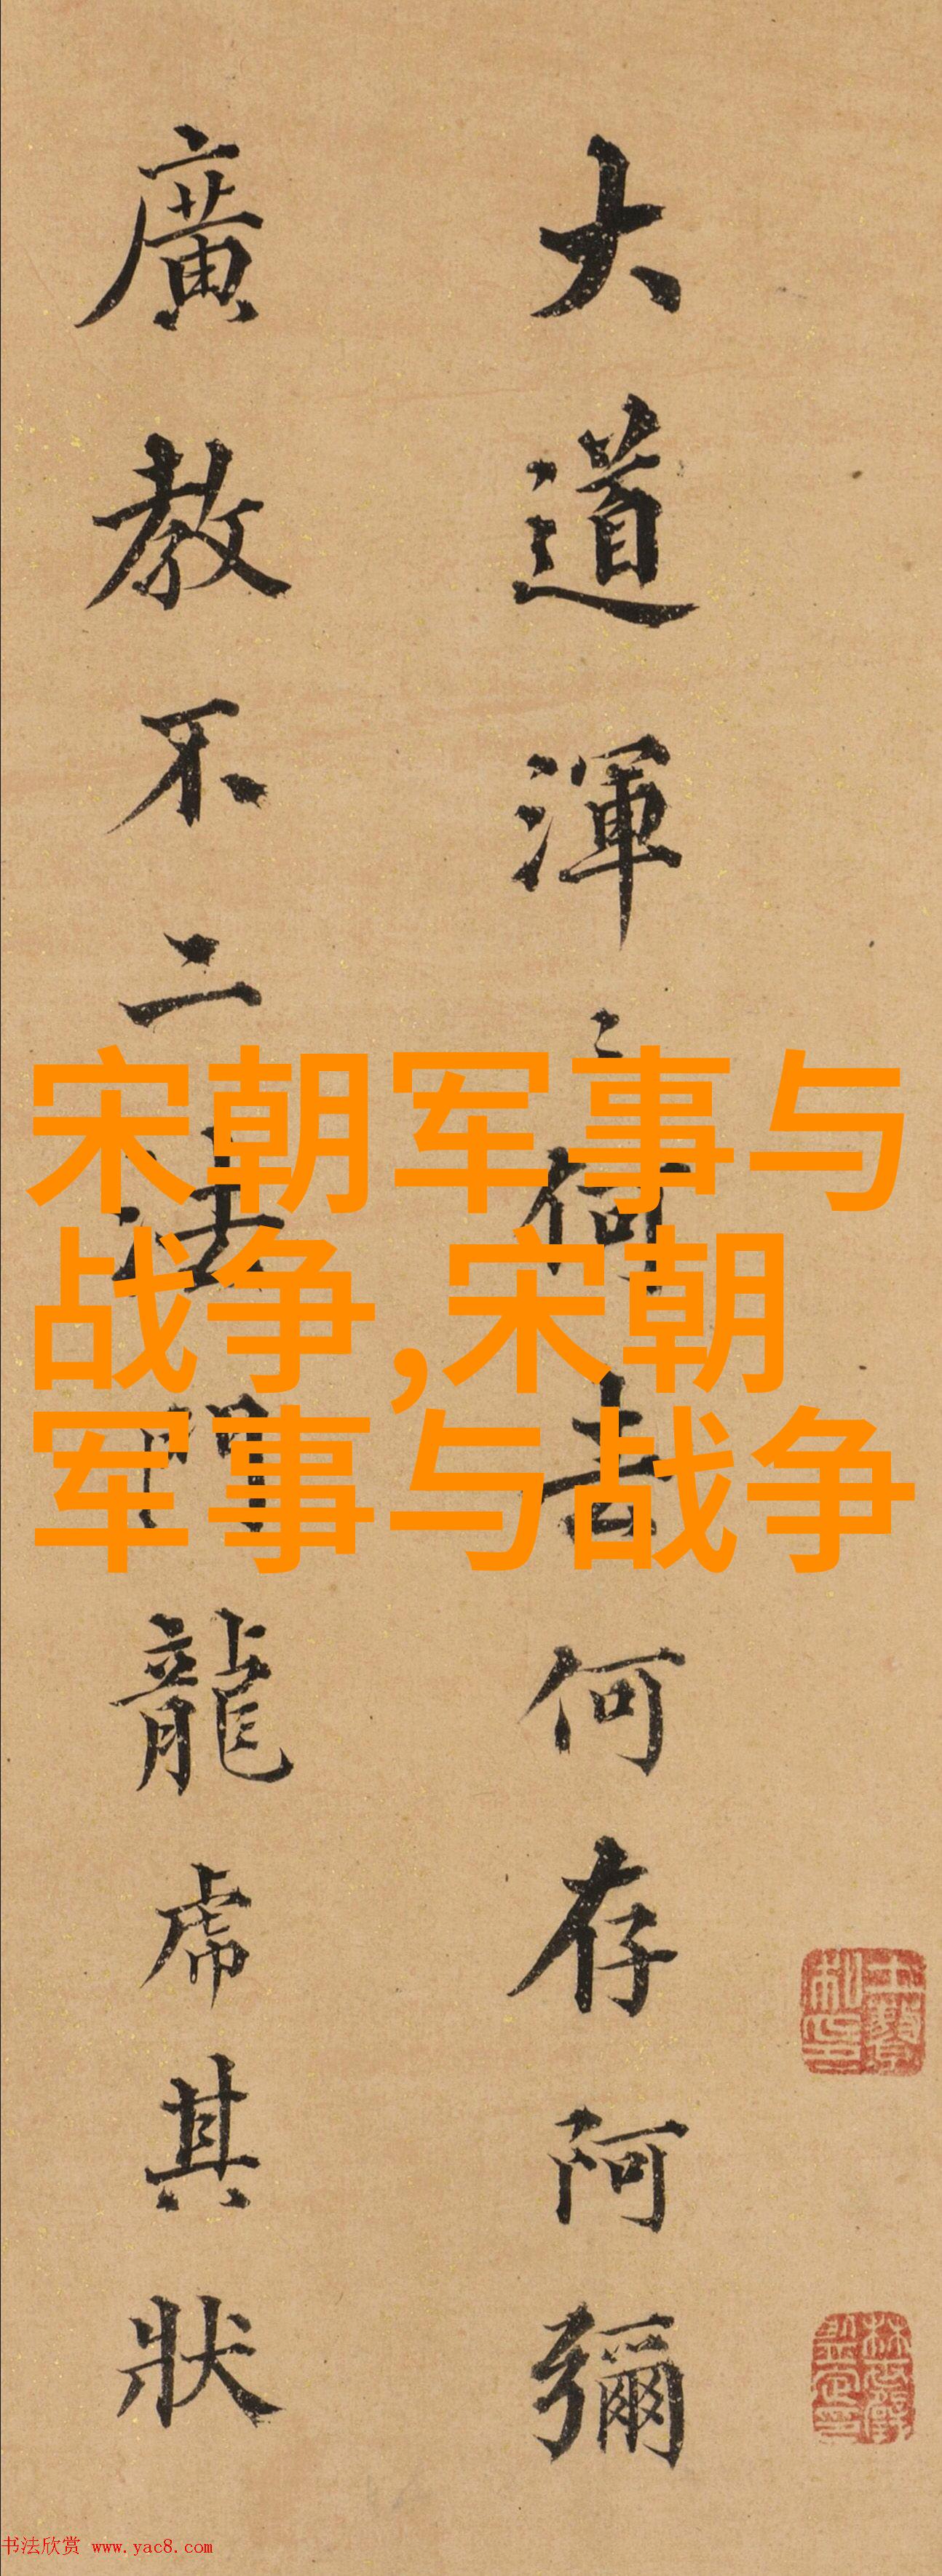 大道渾〻何去何存阿彌
廣教不二法門龍虎其狀
宋朝军事与
战争,宋朝
军事与战争
书法欣赏 www.yac8.com